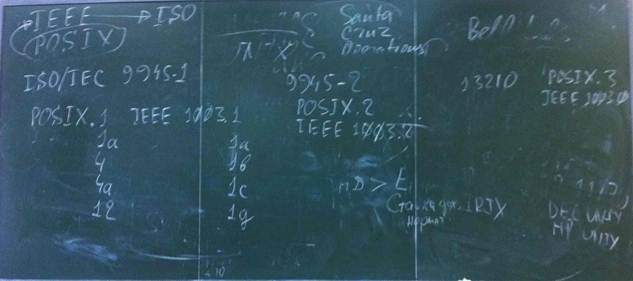 IEEE → ISO
POSIX
ISO/IEC 9945-1
POSIX.1 IEEE 1003.1
1a 1a
4 1b
4a 1c
12 1g
UNIX
Santa
Cruz
Operations
9945-2
POSIX.2
IEEE 1003.2
Bell Labs
13210 POSIX.3
IEEE 1003.
IRIX
DEC UNIX
HP UNIX